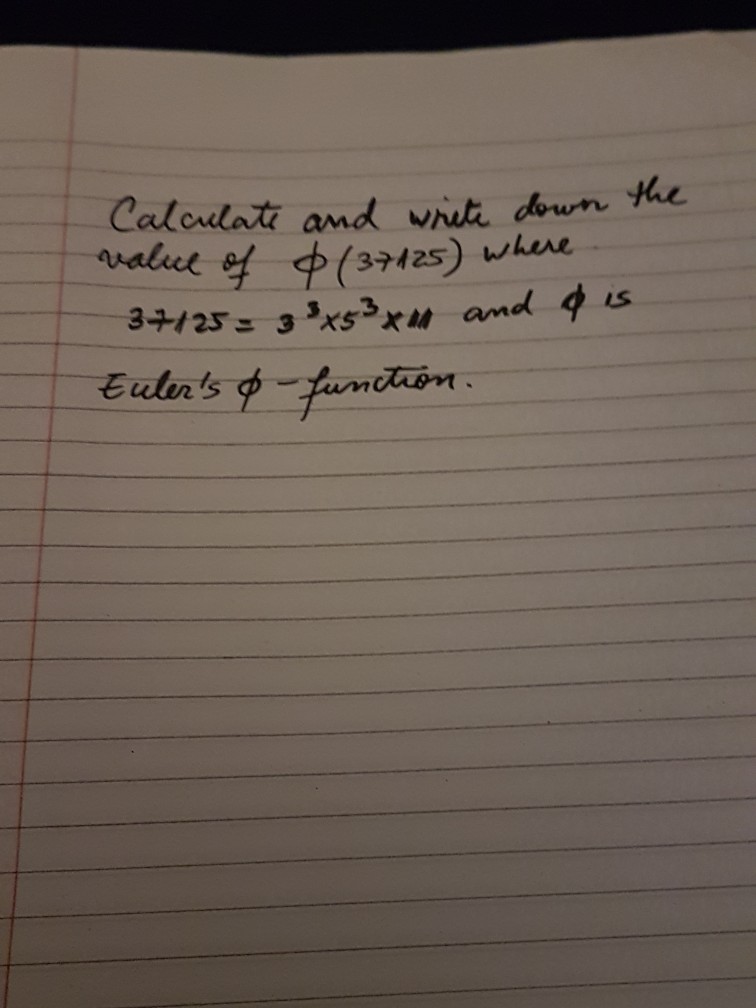 Calculate and write down the
value of ϕ(37125) where
37125 = 3³×5³×11 and ϕ is
Euler's ϕ-function.